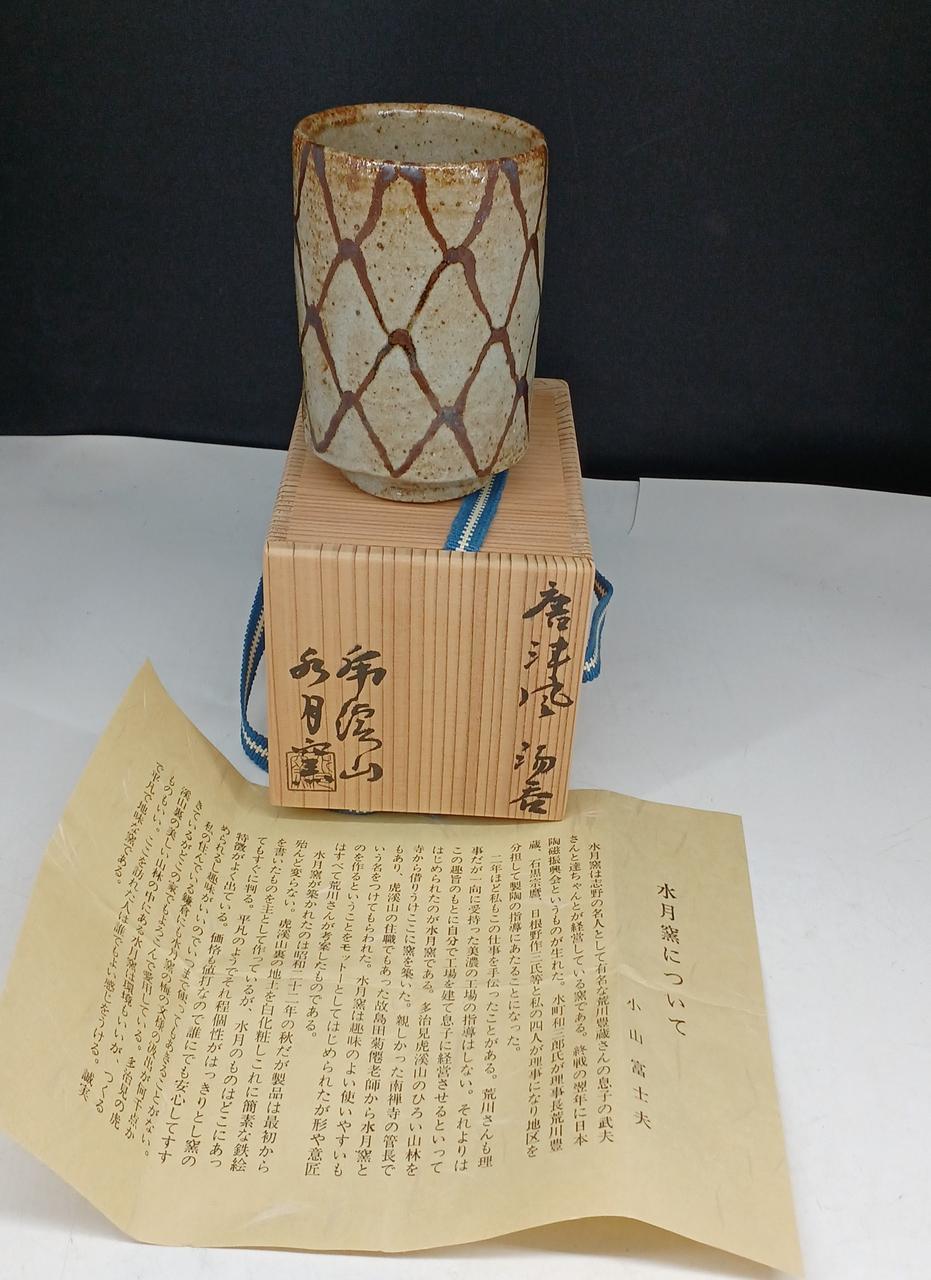 唐津風 湯呑
虎渓山
水月窯
水月窯について
小山富士夫
水月窯は志野の名人として有名な荒川豊蔵さんの息子の武夫
さんと達ちゃんとが経営している窯である。終戦の翌年に日本
陶磁振興会というものが生れた。水町和三郎氏が理事長荒川豊
蔵、石黒宗麿、日根野作三氏等と私の四人が理事になり地区を
分担して製陶の指導にあたることになった。
二年ほど私もこの仕事を手伝ったことがある。荒川さんも理
事だが一向に受持った美濃の工場の指導はしない。それよりは
この趣旨のもとに自分で工場を建て息子に経営させるといって
はじめられたのが水月窯である。多治見虎渓山のひろい山林を
寺から借りうけここに窯を築いた。親しかった南禅寺の管長で
もあり、虎渓山の住職でもあった故島田菊僊老師から水月窯と
いう名をつけてもらわれた。水月窯は趣味のよい使いやすいも
のを作るということをモットーとしてはじめられたが形や意匠
はすべて荒川さんが考案したものである。
水月窯が築かれたのは昭和二十二年の秋だが製品は最初から
殆んど変らない。虎渓山裏の地土を白化粧しこれに簡素な鉄絵
を書いたものを主として作っているが、水月のものはどこにあっ
てもすぐに判る。平凡のようでそれ程個性がはっきりとし窯の
特徴がよく出ている。価格も値打なので誰にでも安心してすす
められるし趣味がいいので、いつまで使ってもあきることがない。
私の住んでいる鎌倉にも水月窯の梅の文様の汲出が何十点か
きているがどこの家でもよろこんで愛用している。多治見の虎
渓山裏の美しい山林の中にある水月窯は環境もいいが、つくる
ものもいい。ここを訪れた人は誰でもよい感じをうける。誠実
で平凡で地味な窯である。